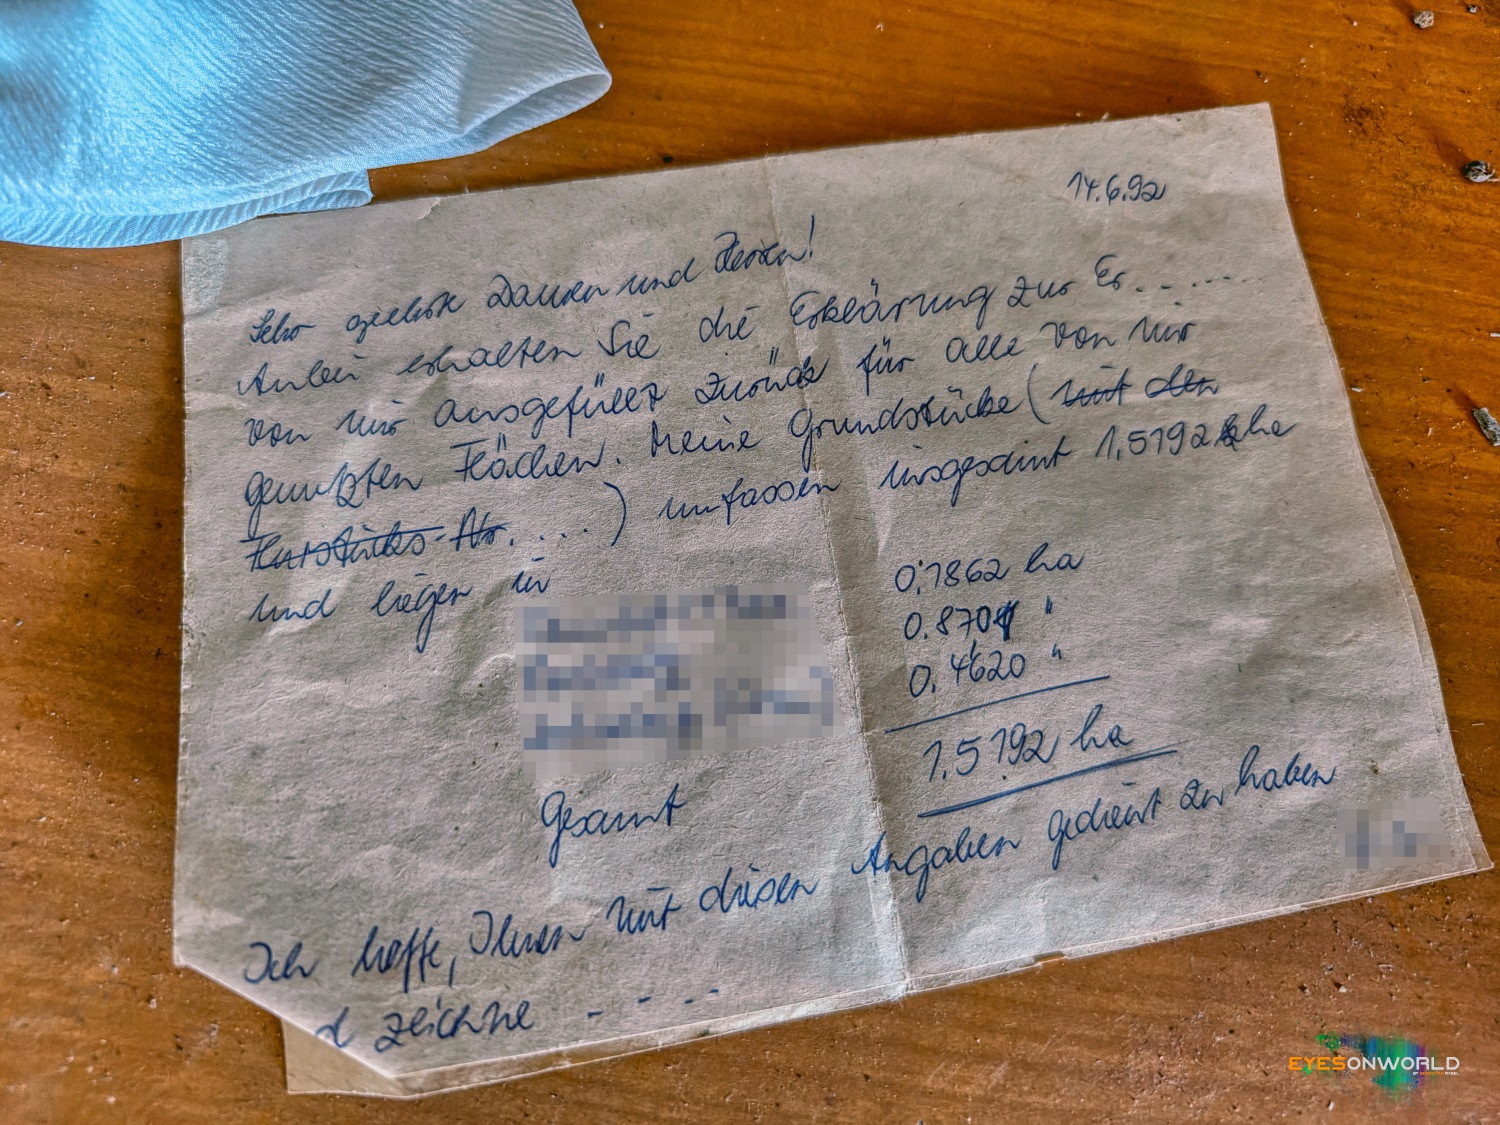 14.6.92
Sehr geehrte Damen und Herren!
Anbei erhalten Sie die Erklärung zur Er........
von mir ausgefüllt zurück für alle von mir
genutzten Flächen. Meine Grundstücke (mit den
Flurstücks-Nr. ....) umfassen insgesamt 1,5192 ha
und liegen in
0,1862 ha
0.8704 "
0.4620 "
1.5192 ha
Gesamt
Ich hoffe, Ihnen mit diesen Angaben gedient zu haben
d zeichne - - - -
EYESONWORLD